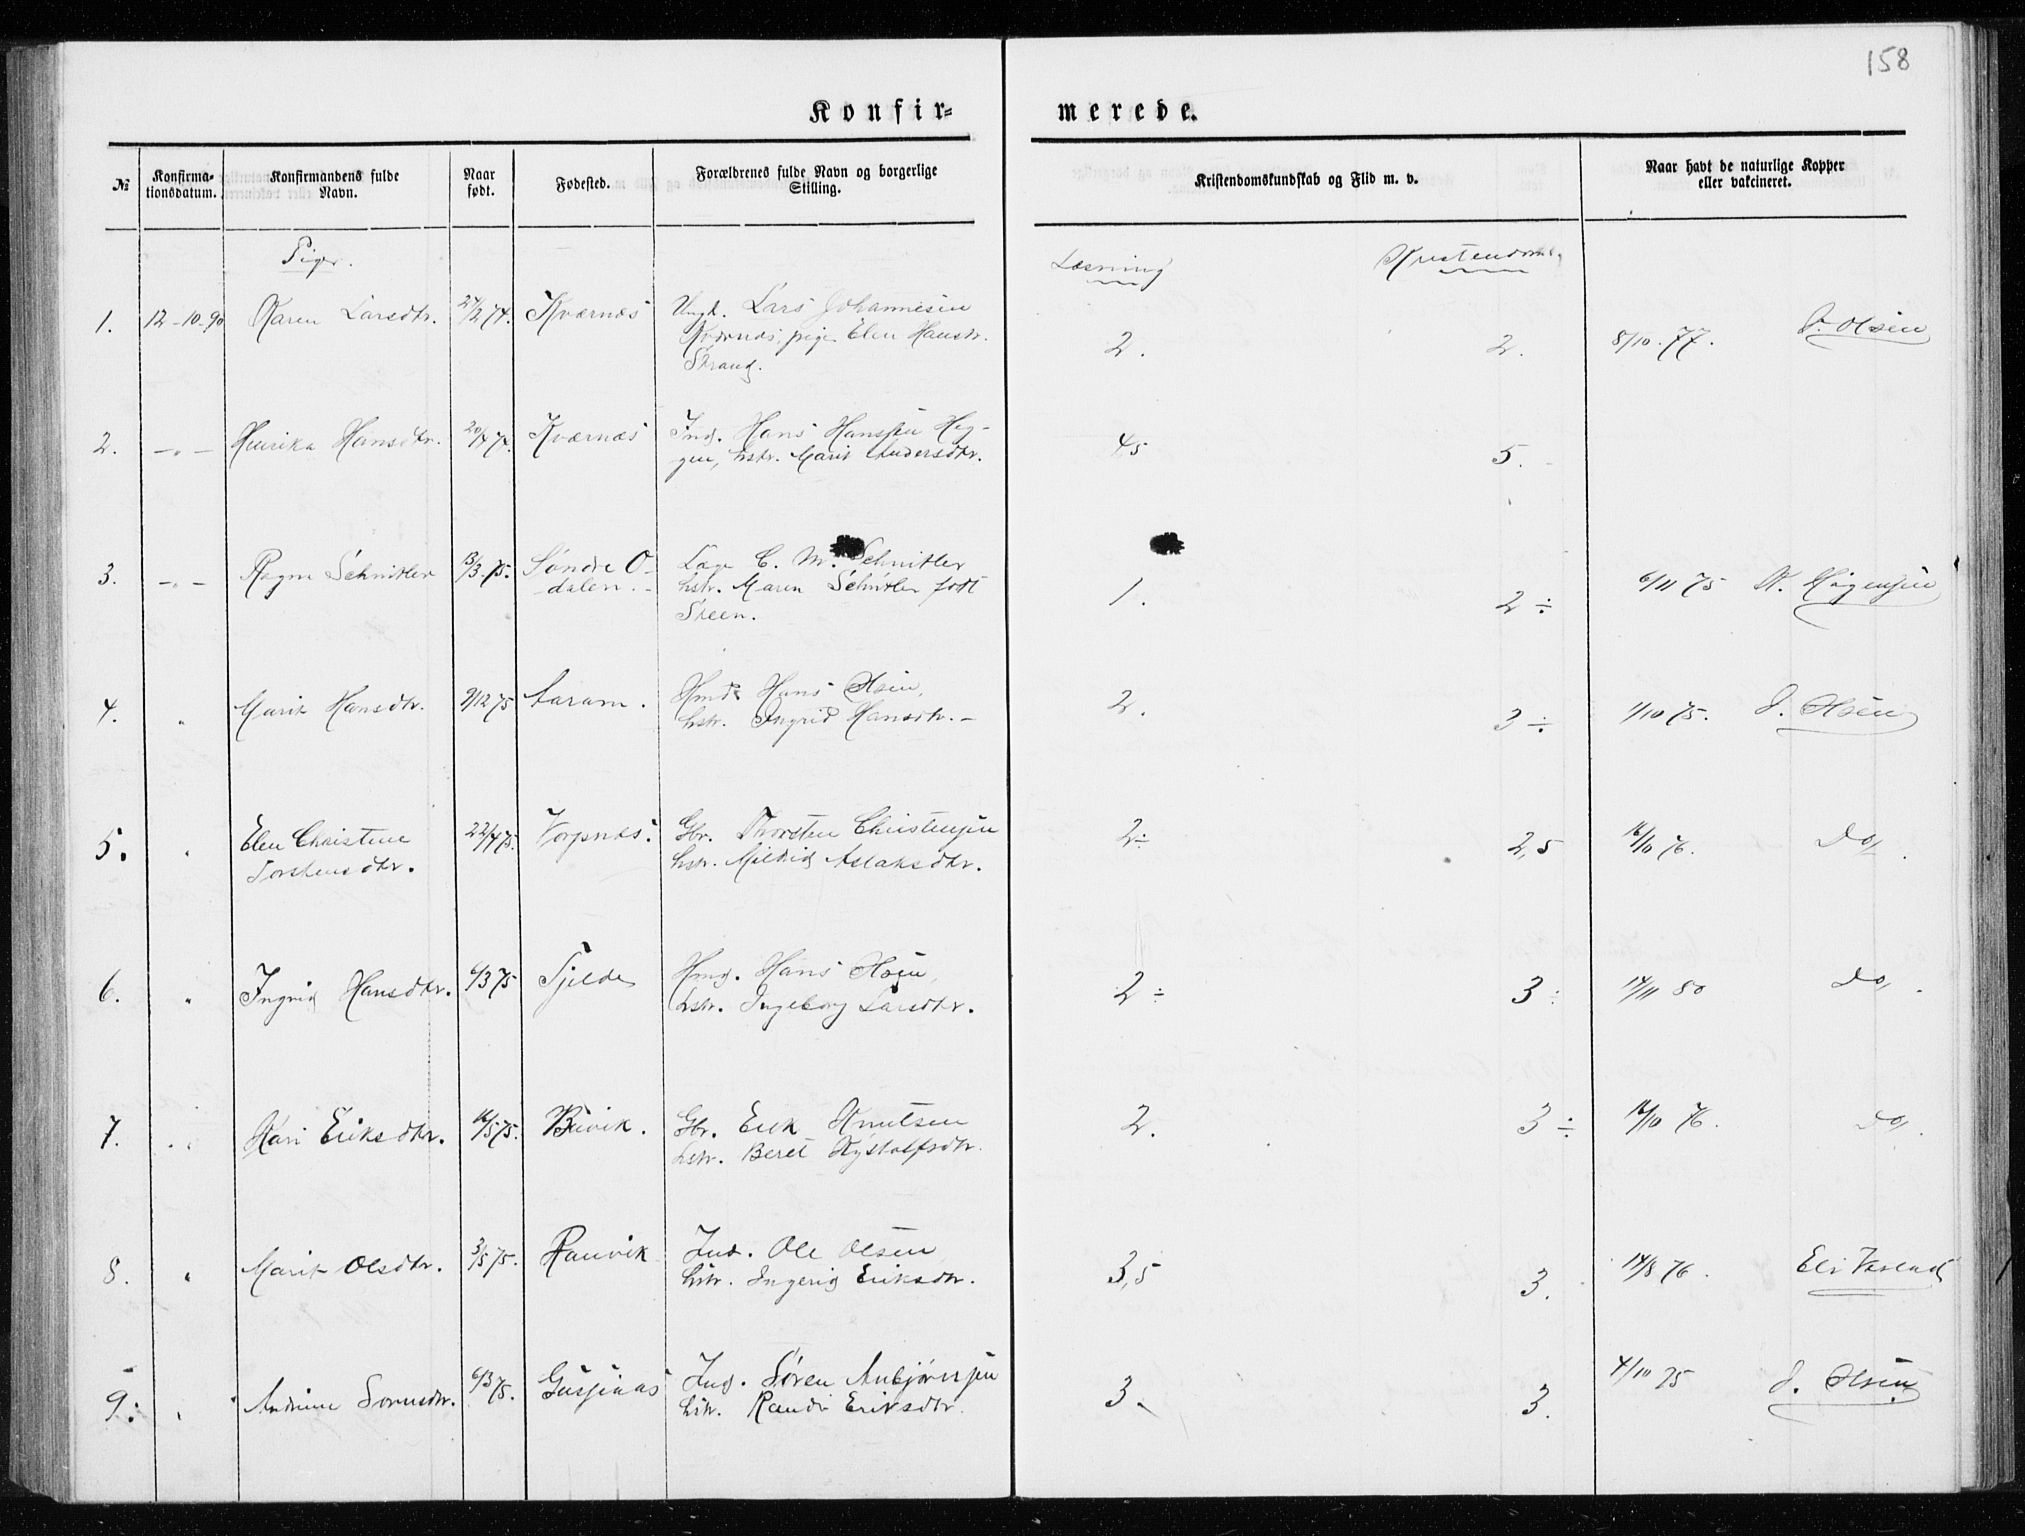 158
Konfir-
merede.
№
Konfirma-
tionsdatum.
Konfirmandens fulde
Navn.
Naar
født.
Fødested.
Forældrenes fulde Navn og borgerlige
Stilling.
Kristendomskundskab og Flid m. v.
Naar havt de naturlige Kopper
eller vakcineret.
Piger.
Læsning
Kristendoms.
1. 12-10-90 Karen Larsdtr. 27/2 74. Kværnæs Ungk. Lars Johannesen
Kværnæs, pige Elen Hansdtr.
Strand.
2. 2. 8/10. 77. J. Olsen
2. -"- Henrika Hansdtr. 20/4 74. Kværnæs Ind. Hans Hanssen Heg-
gen, hstr. Marit Andersdtr.
4,5 5.
3. -"- Ragna Schnitler 13/3. 75. Søndre O-
dalen. Læge C. M. Schnitler
hstr. Maren Schnitler født
Steen.
1. 2 ÷ 6/11 75
4. " Marit Hansdtr. 9/12 75 Aaram. Hmd. Hans Olsen,
hstr. Ingrid Hansdtr. -
2. 3 ÷ 1/10 75. J. Olsen
5. " Elen Christine
Torstensdtr. 22/4 75. Vorpnæs. Gbr. Thorsten Christensen
hstr. Mildrid Aslaksdtr.
2÷ 2,5 16/10 76. Do.
6. " Ingrid Hansdtr. 6/3 75 Tjelde Hmd. Hans Olsen,
hstr. Ingeborg Larsdtr.
2 ÷ 3 ÷ 17/11 80 Do.
7. " Kari Eriksdtr. 16/5 75. Buvik. Gbr. Erik Knutsen
hstr. Beret Kystolfsdtr.
2. 3 ÷ 16/10 76. Do.
8. " Marit Olsdtr. 3/5 75. Ranvik Ind. Ole Olsen
hstr. Ingerid Eriksdtr.
3,5 3. 14/8 76. Eli
9. " Andrine Sørensdtr. 6/3 75. Gussiaas Ind. Søren Anbjørnsen
hstr. Randi Eriksdtr.
3. 3. 4/10 75 J. Olsen